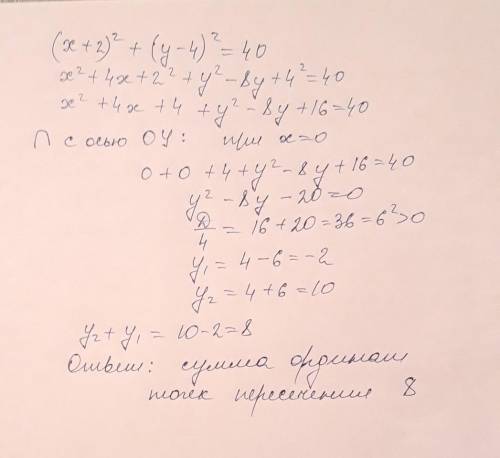 (x+2)² + (y-4)² = 40
x² + 4x + 2² + y² - 8y + 4² = 40
x² + 4x + 4 + y² - 8y + 16 = 40
∩ с осью OY: при x=0
0 + 0 + 4 + y² - 8y + 16 = 40
y² - 8y - 20 = 0
D/4 = 16 + 20 = 36 = 6² > 0
y₁ = 4 - 6 = -2
y₂ = 4 + 6 = 10
y₂ + y₁ = 10 - 2 = 8
Ответ: сумма ординат
точек пересечения 8